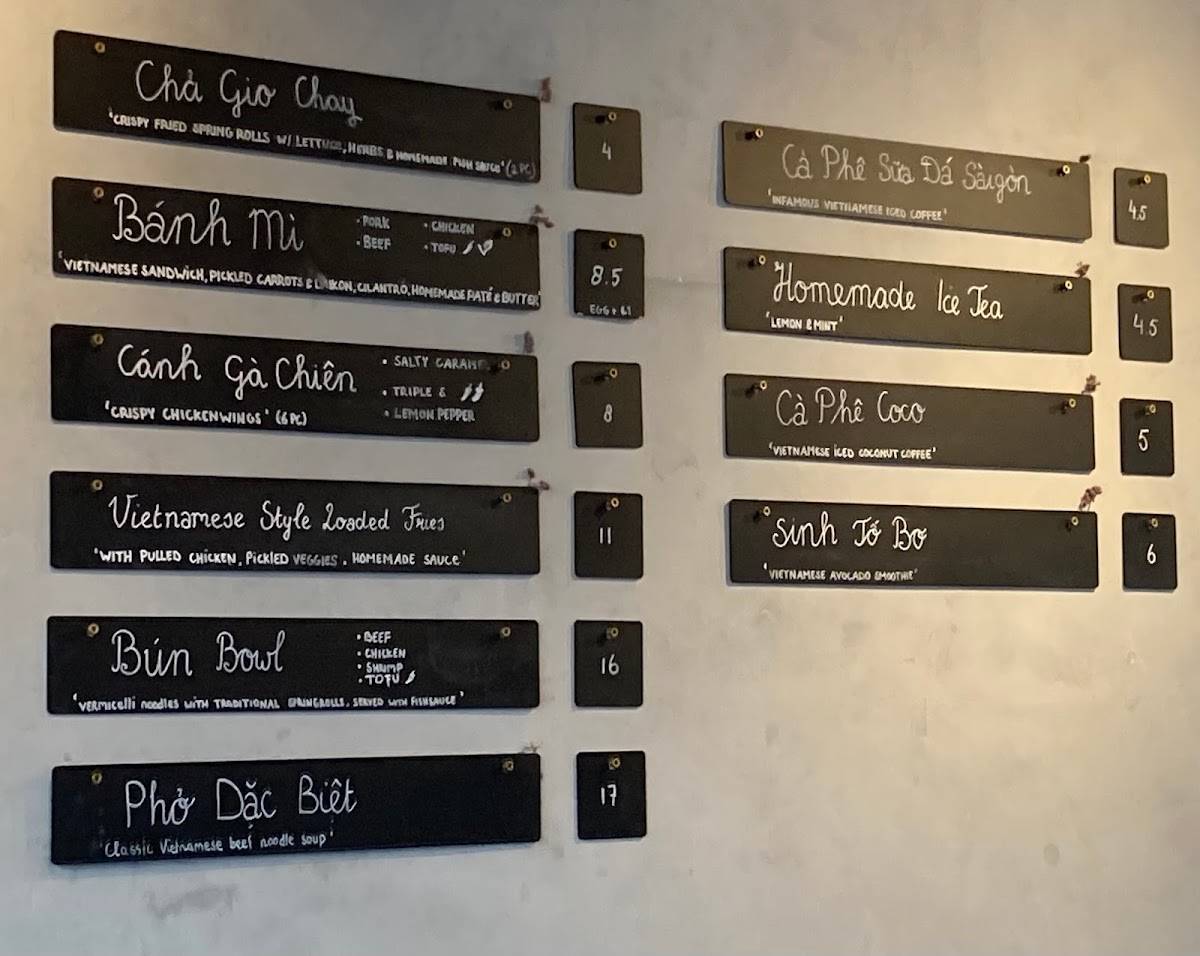 Chả Gio Chay
'CRISPY FRIED SPRING ROLLS W/ LETTUCE, HERBS & HOMEMADE FISH SAUCE' (2 PC)
4
Bánh Mì
• PORK • CHICKEN
• BEEF • TOFU
'VIETNAMESE SANDWICH, PICKLED CARROTS & DAIKON, CILANTRO, HOMEMADE PATÉ & BUTTER'
8.5
EGG +
Cánh Gà Chiên
• SALTY CARAMEL
• TRIPLE
• LEMON PEPPER
'CRISPY CHICKENWINGS' (6 PC)
8
Vietnamese Style Loaded Fries
'WITH PULLED CHICKEN, PICKLED VEGGIES, HOMEMADE SAUCE'
11
Bún Bowl
• BEEF
• CHICKEN
• SHRIMP
• TOFU
'VERMICELLI NOODLES WITH TRADITIONAL SPRINGROLLS, SERVED WITH FISHSAUCE'
16
Phở Dặc Biệt
'Classic Vietnamese beef noodle soup'
17
Cà Phê Sữa Đá Sàigòn
'INFAMOUS VIETNAMESE ICED COFFEE'
4.5
Homemade Ice Tea
'LEMON & MINT'
4.5
Cà Phê Coco
'VIETNAMESE ICED COCONUT COFFEE'
5
Sinh Tố Bo
'VIETNAMESE AVOCADO SMOOTHIE'
6